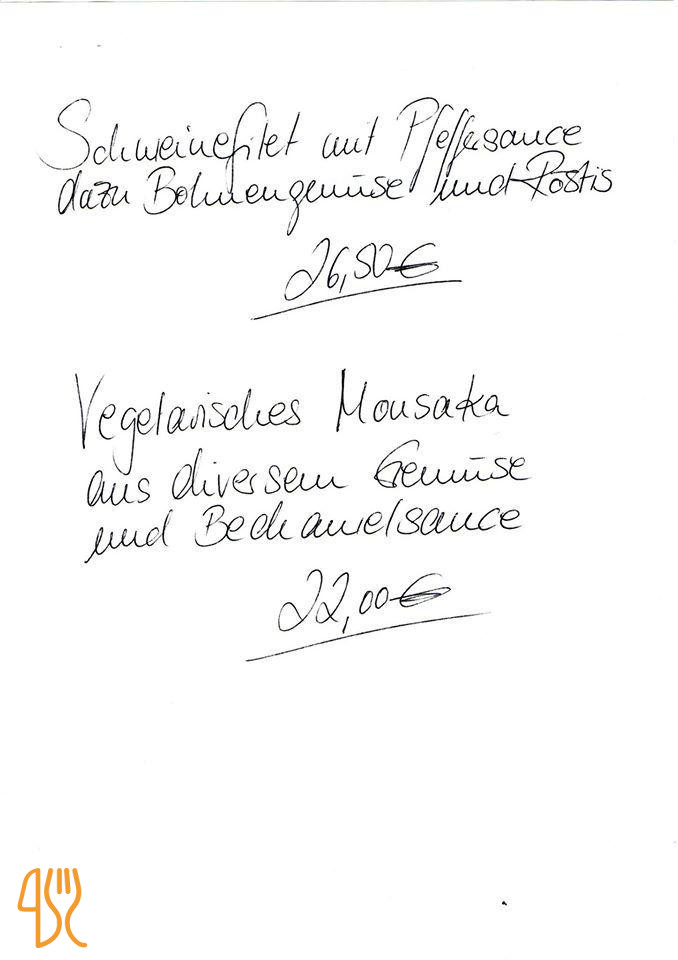 Schweinefilet mit Pfeffersauce
dazu Bohnengemüse und Röstis
26,50€
Vegetarisches Mousaka
aus diversem Gemüse
und Bechamelsauce
22,00€